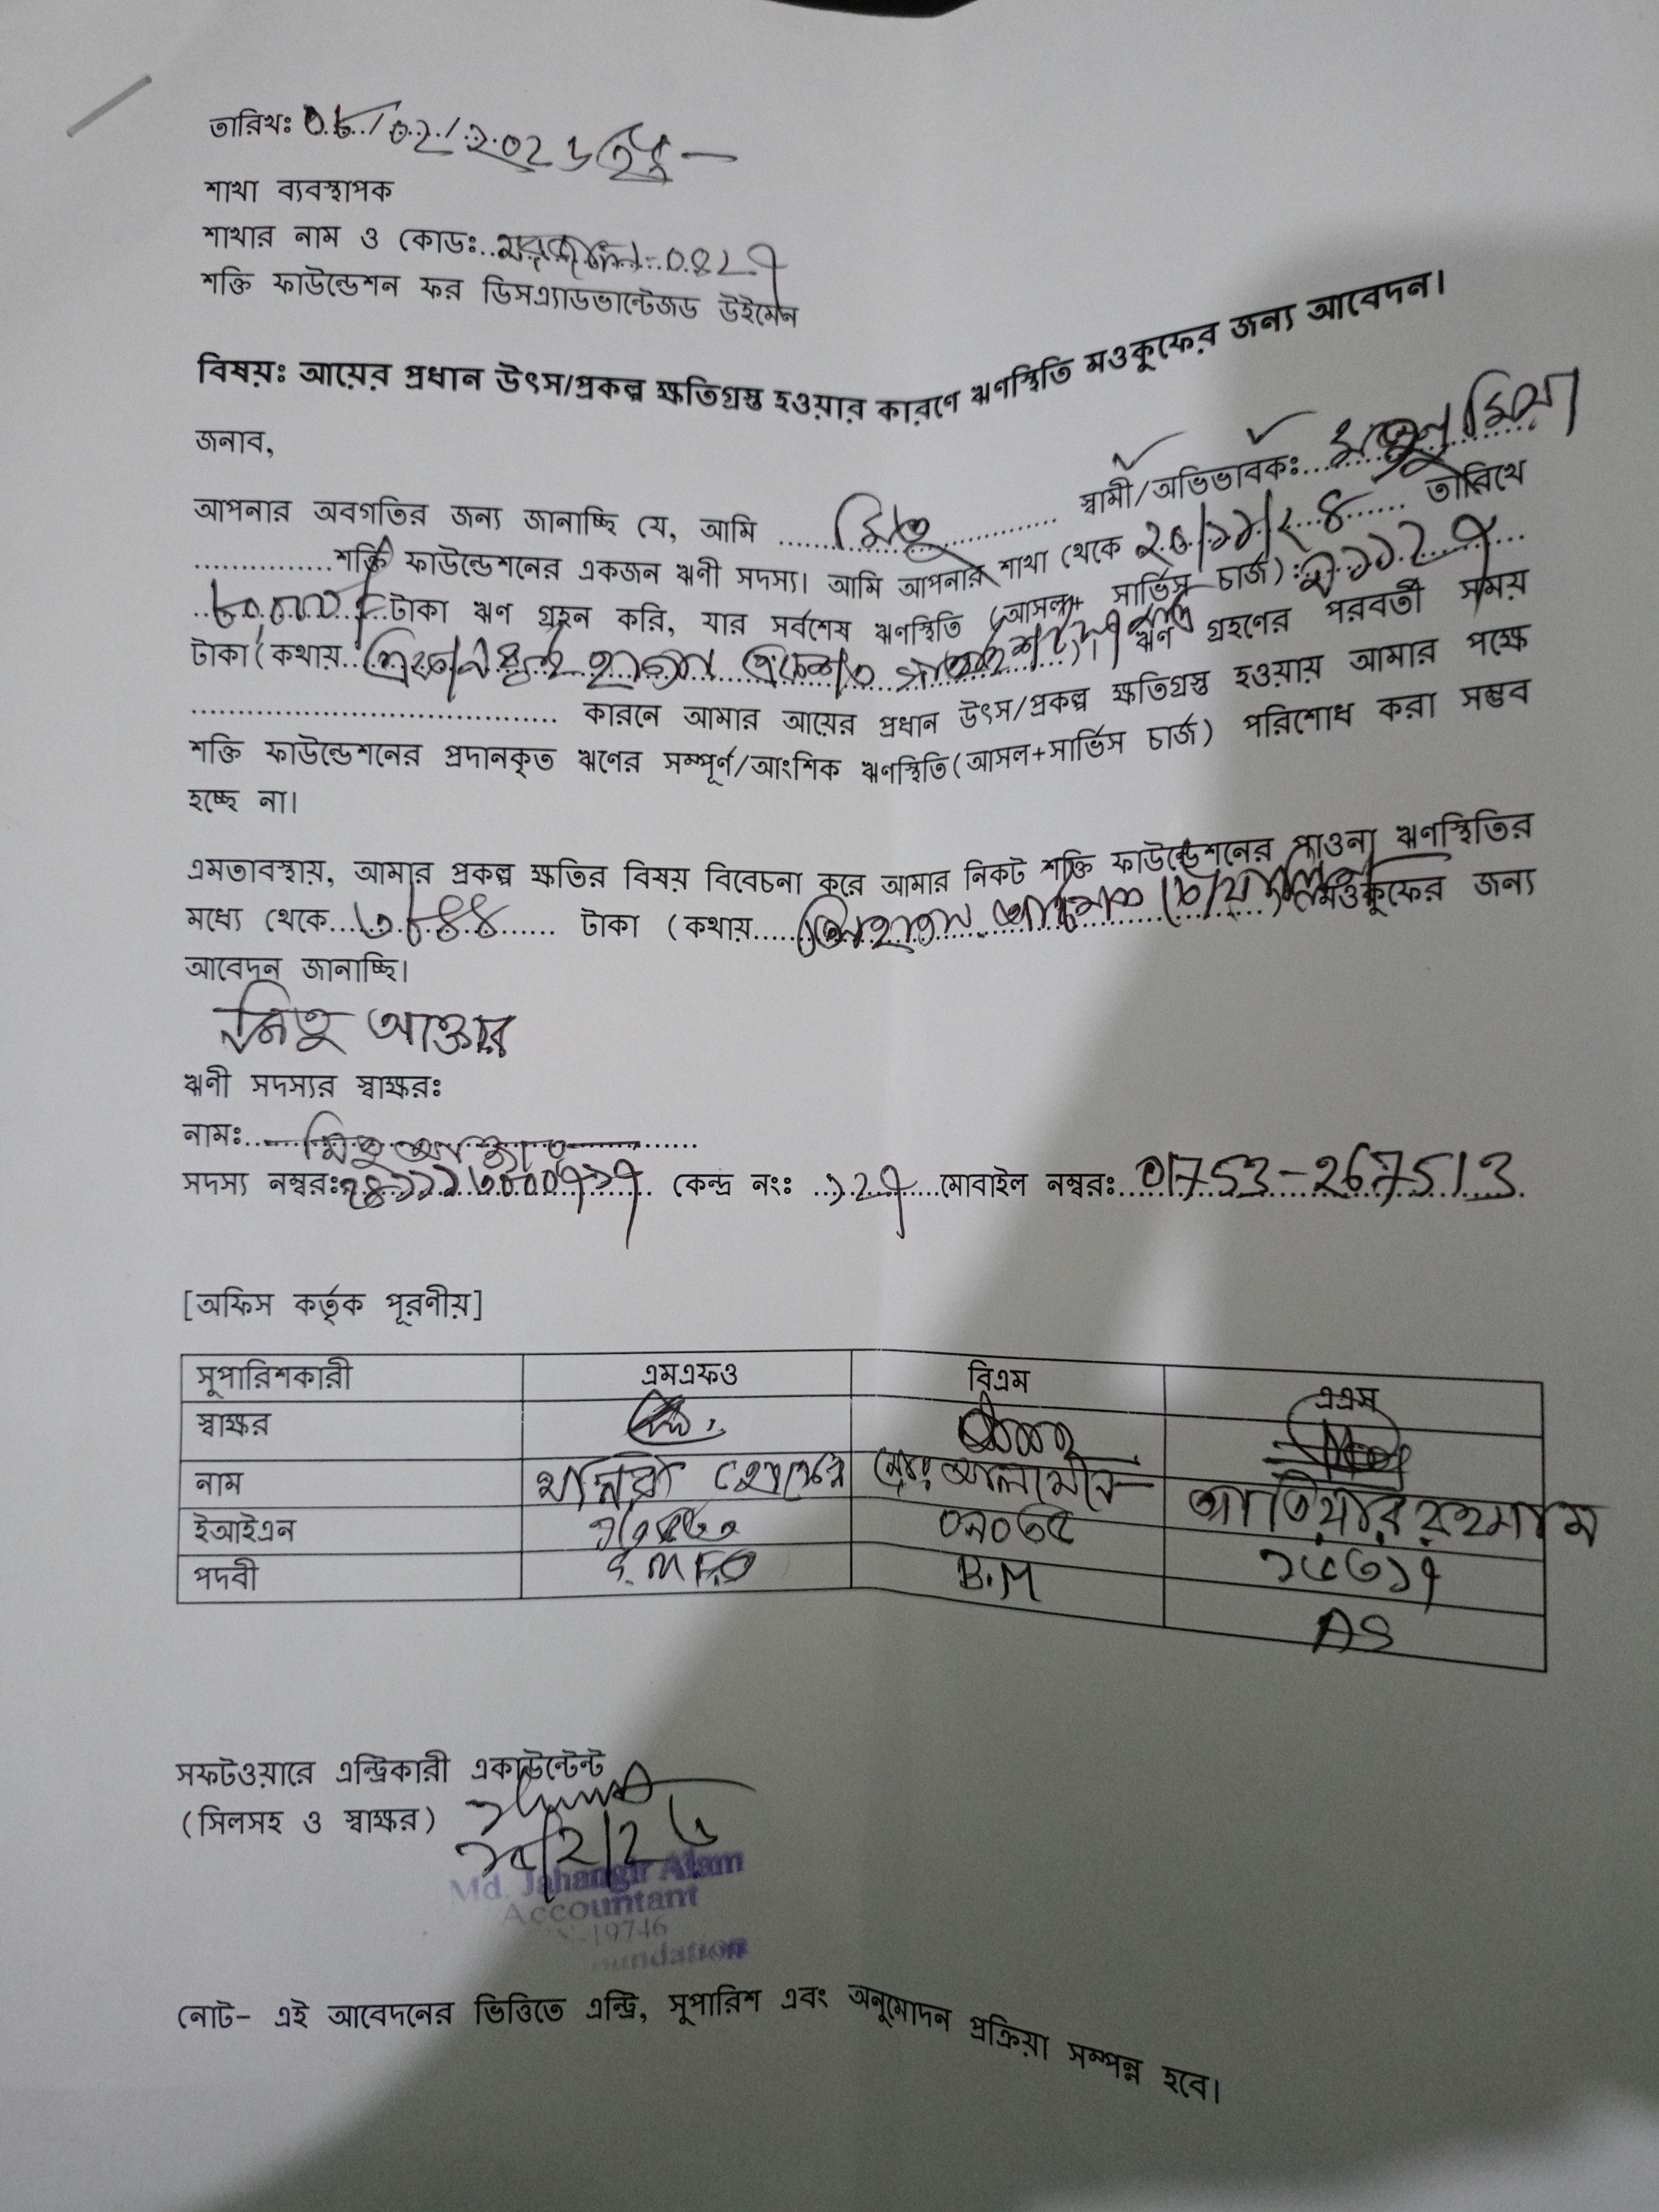 তারিখঃ ০৮/০২/২০২৬ ইং
শাখা ব্যবস্থাপক
শাখার নাম ও কোডঃ.. ০৪২৭
শক্তি ফাউন্ডেশন ফর ডিসএ্যাডভান্টেজড উইমেন
বিষয়ঃ আয়ের প্রধান উৎস/প্রকল্প ক্ষতিগ্রস্ত হওয়ার কারণে ঋণস্থিতি মওকুফের জন্য আবেদন।
জনাব,
আপনার অবগতির জন্য জানাচ্ছি যে, আমি ...... মিতু ...... স্বামী/অভিভাবকঃ... মিয়া
...............শক্তি ফাউন্ডেশনের একজন ঋণী সদস্য। আমি আপনার শাখা থেকে ২০/১১/২৪ ...... তারিখে
..৮০,০০০...টাকা ঋণ গ্রহন করি, যার সর্বশেষ ঋণস্থিতি (আসল+ সার্ভিস চার্জ):
টাকা(কথায়.. হাজার ......)। ঋণ গ্রহণের পরবর্তী সময়
..................................... কারনে আমার আয়ের প্রধান উৎস/প্রকল্প ক্ষতিগ্রস্ত হওয়ায় আমার পক্ষে
শক্তি ফাউন্ডেশনের প্রদানকৃত ঋণের সম্পূর্ণ/আংশিক ঋণস্থিতি(আসল+সার্ভিস চার্জ) পরিশোধ করা সম্ভব
হচ্ছে না।
এমতাবস্থায়, আমার প্রকল্প ক্ষতির বিষয় বিবেচনা করে আমার নিকট শক্তি ফাউন্ডেশনের পাওনা ঋণস্থিতির
মধ্যে থেকে...৩৮৪৪...... টাকা (কথায়...... ) মওকুফের জন্য
আবেদন জানাচ্ছি।
মিতু আক্তার
ঋণী সদস্যর স্বাক্ষরঃ
নামঃ.... মিতু আক্তার ........
সদস্য নম্বরঃ কেন্দ্র নংঃ ...১২৭......মোবাইল নম্বরঃ...01753-267513.
[অফিস কর্তৃক পূরণীয়]
সুপারিশকারী এমএফও বিএম এএস
স্বাক্ষর
নাম মোঃ আলামিন আতিয়ার রহমান
ইআইএন ০৯০৬৫ ১৫৩১৭
পদবী B.M AS
সফটওয়ারে এন্ট্রিকারী একাউন্টেন্ট
(সিলসহ ও স্বাক্ষর)
Md. Jahangir Alam
Accountant
19746
undation
নোট- এই আবেদনের ভিত্তিতে এন্ট্রি, সুপারিশ এবং অনুমোদন প্রক্রিয়া সম্পন্ন হবে।